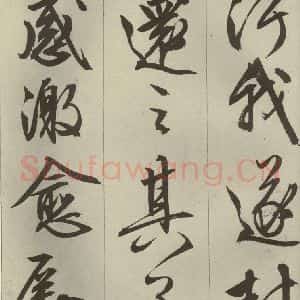 我遂封
還之其
感激愈
Shufawang.CN